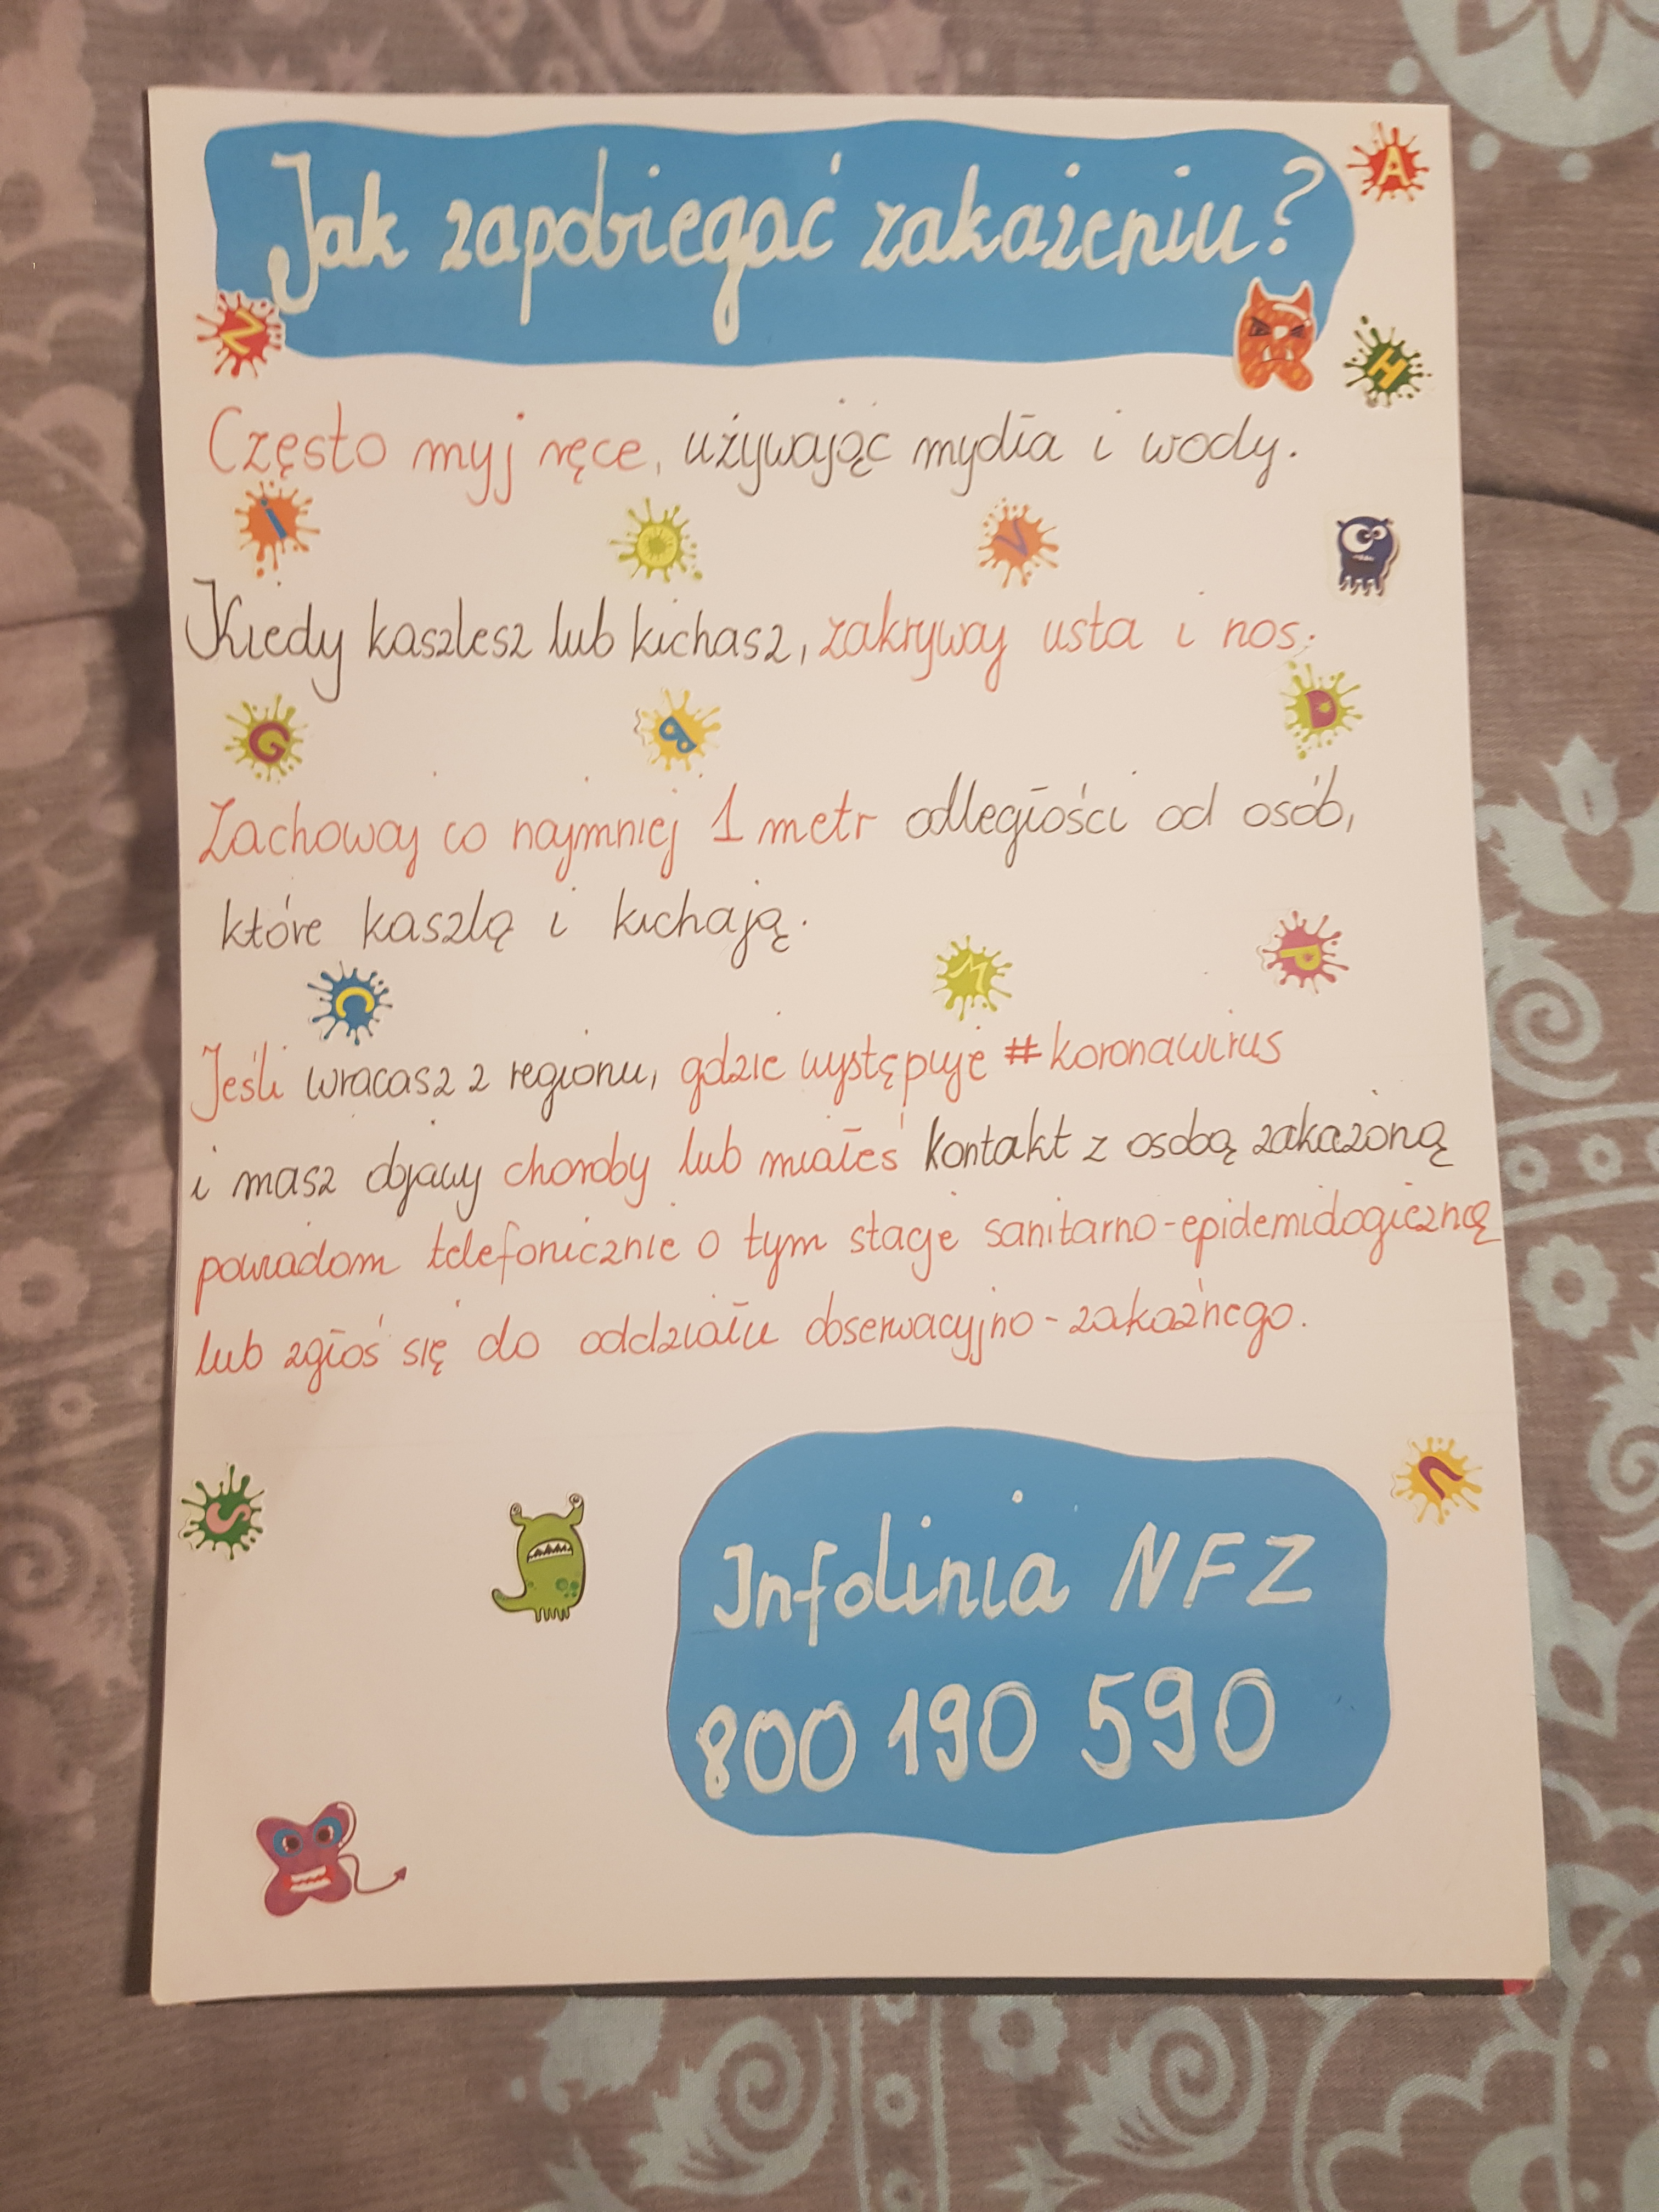 Jak zapobiegać zakażeniu?
A
Z
H
Często myj ręce, używając mydła i wody.
i
O
V
Kiedy kaszlesz lub kichasz, zakrywaj usta i nos.
G
D
Zachowaj co najmniej 1 metr odległości od osób,
które kaszlą i kichają.
C
M
P
Jeśli wracasz z regionu, gdzie występuje #koronawirus
i masz objawy choroby lub miałeś kontakt z osobą zakażoną
powiadom telefonicznie o tym stacje sanitarno-epidemiologiczną
lub zgłoś się do oddziału obserwacyjno-zakaźnego.
S
Infolinia NFZ
800 190 590